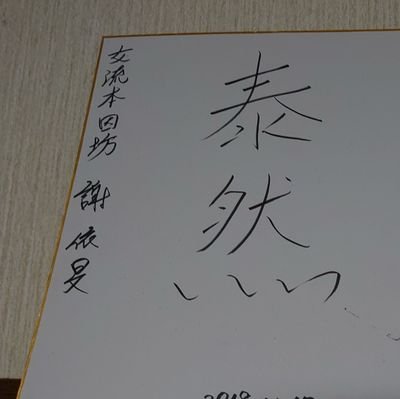 泰然
女流本因坊 謝依旻